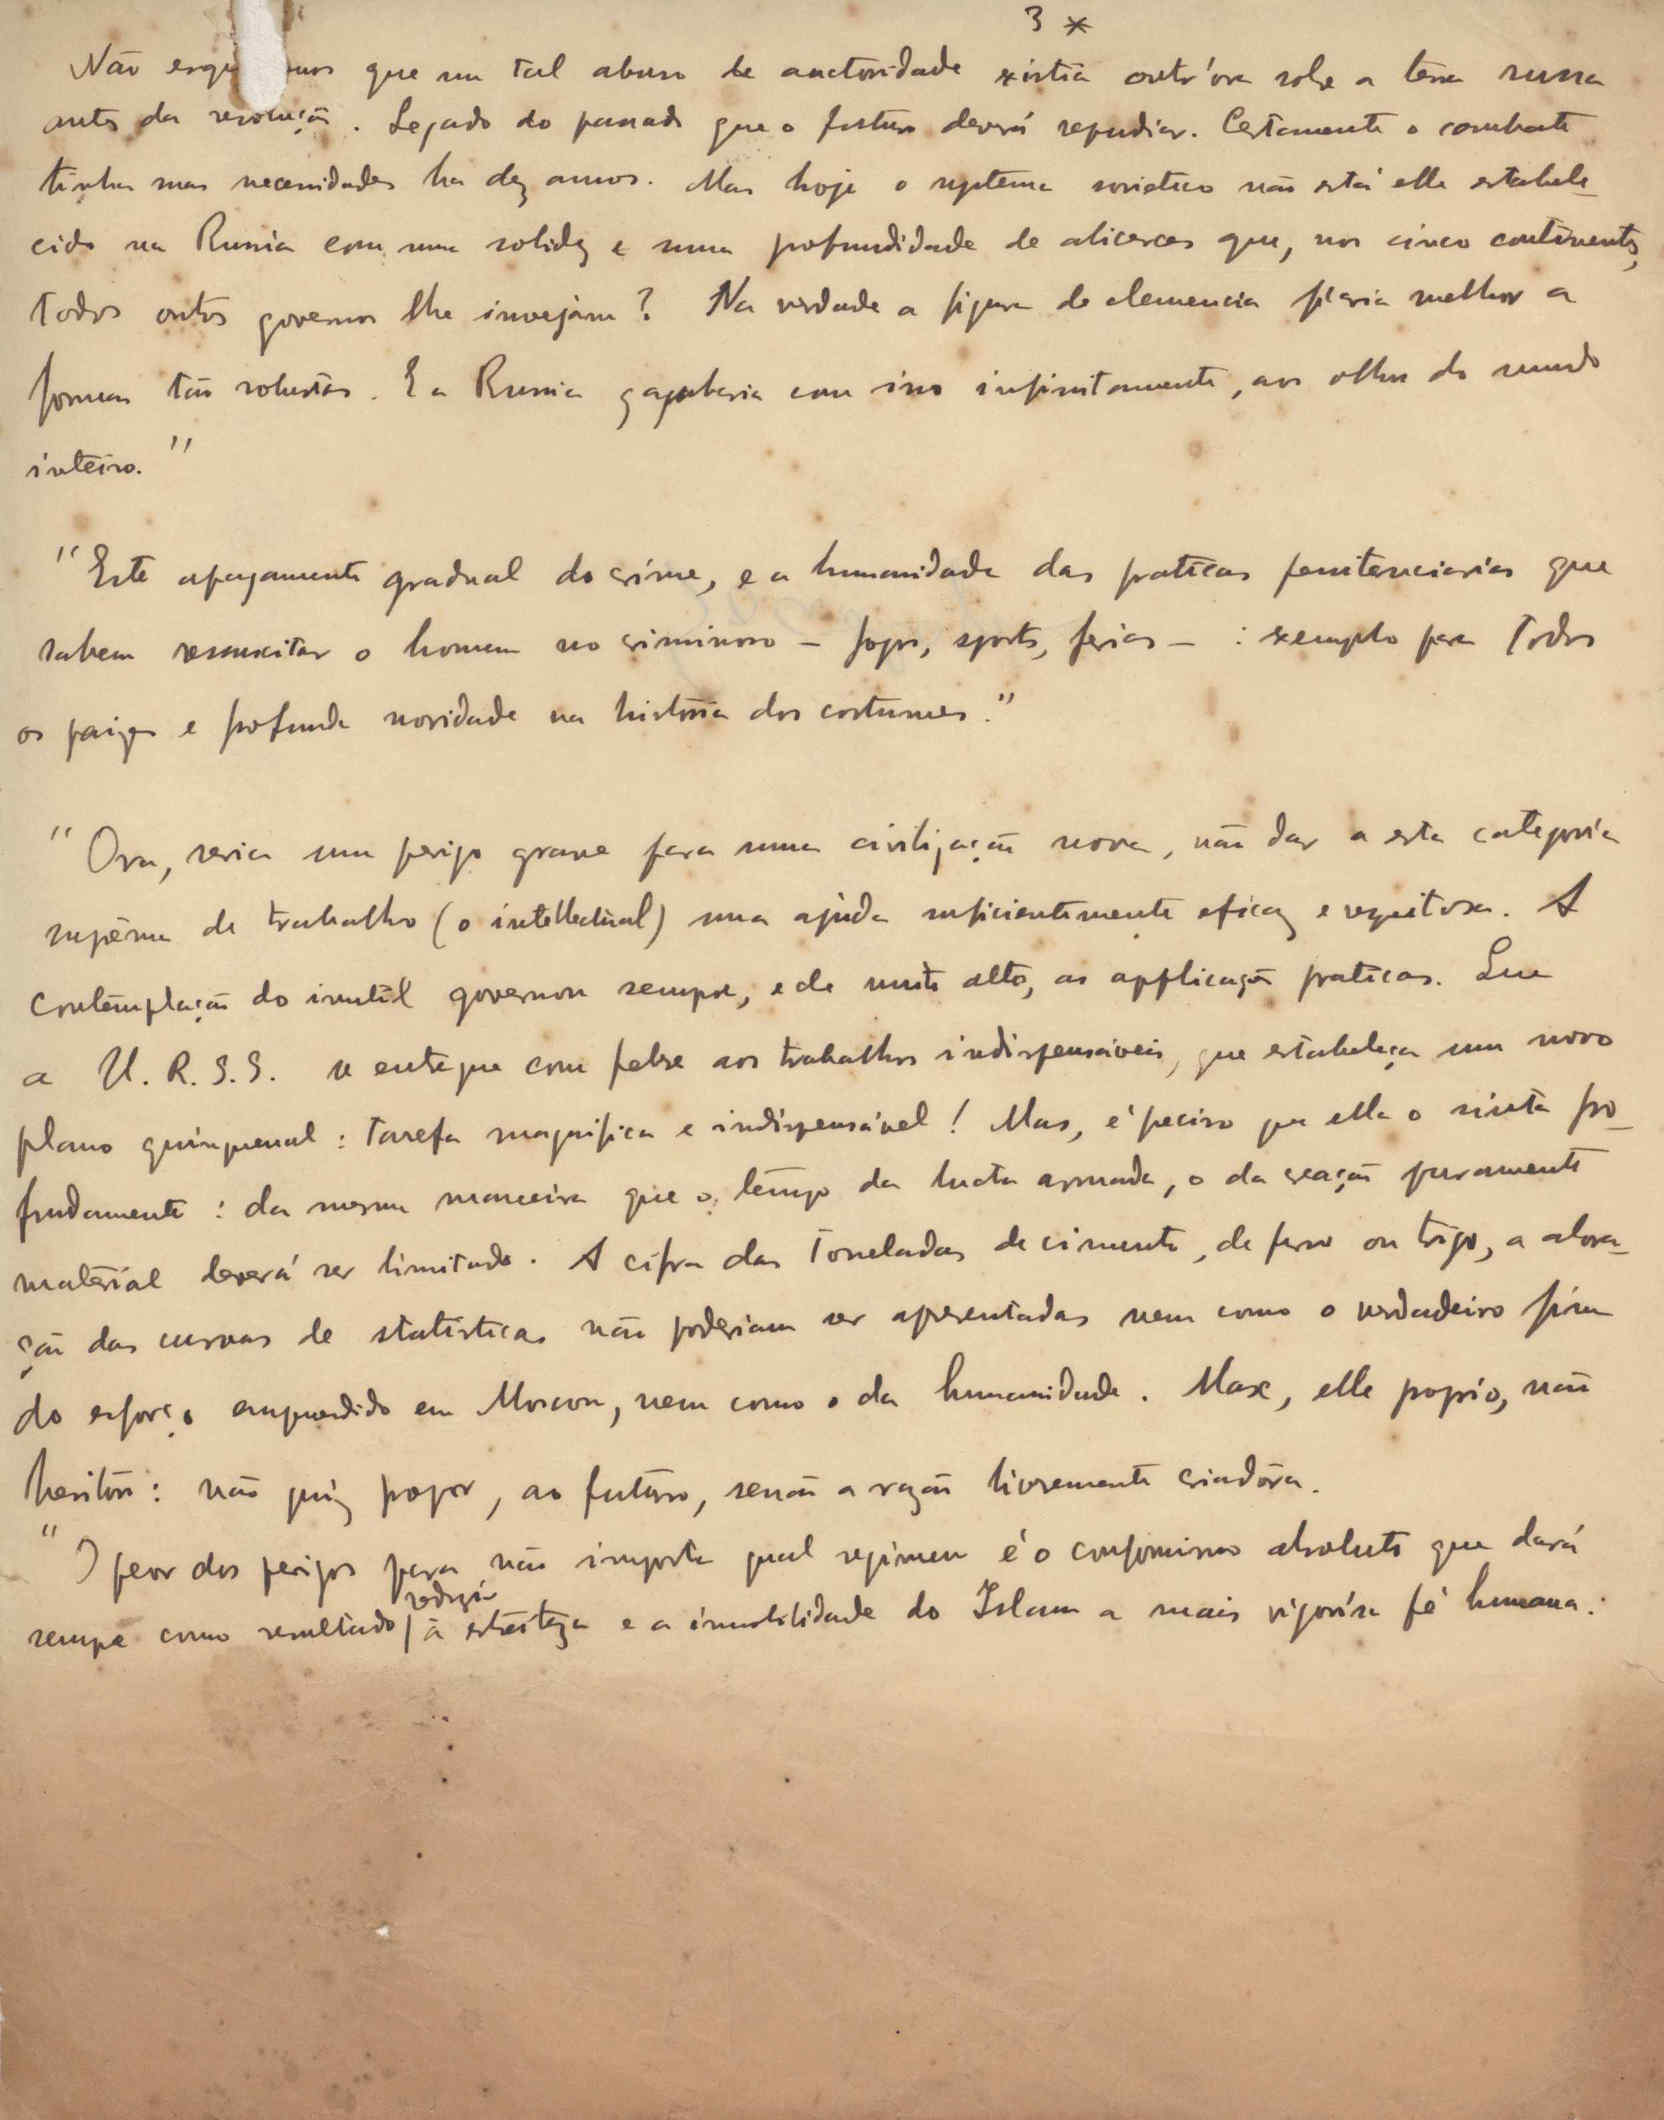 3 *
Não esque mos que um tal abuso de auctoridade existia outr'ora sobre a terra russa
antes da revolução. Legado do passado que o futuro deverá repudiar. Certamente o combate
tinha suas necessidades ha dez annos. Mas hoje o systema sovietico não está elle estabele-
cido na Russia com uma solidez e uma profundidade de alicerces que, nos cinco continentes,
todos outros governos lhe invejam? Na verdade a figura de clemencia ficaria melhor a
formas tão robustas. E a Russia ganharia com isso infinitamente, aos olhos do mundo
inteiro."
"Este apagamento gradual do crime, e a humanidade das praticas penitenciarias que
sabem ressuscitar o homem no criminoso – jogos, sports, ferias – : exemplo para todos
os paizes e profunda novidade na história dos costumes."
"Ora, seria um perigo grave para uma civilização nova, não dar a esta categoria
suprema de trabalho (o intellectual) uma ajuda suficientemente eficaz e respeitosa. A
contemplação do inutil governou sempre, e de muito alto, as applicações praticas. Que
a U.R.S.S. se entregue com febre aos trabalhos indispensáveis, que estabeleça um novo
plano quinquenal: tarefa magnifica e indispensável! Mas, é preciso que ella o sinta pro-
fundamente: da mesma maneira que o tempo da lucta armada, o da creação puramente
material deverá ser limitado. A cifra das toneladas de cimento, de ferro ou trigo, a alora-
ção das curvas de statisticas não poderiam ser apresentadas nem como o verdadeiro fim
do esforço emprendido em Moscou, nem como o da humanidade. Marx, elle proprio, não
hesitou: não quiz propor, ao futuro, senão a razão livremente criadora.
"O peor dos perigos para não importa qual regimen é o conformismo absoluto que dará
sempre como resultado reduzir à estreiteza e a imobilidade do Islam a mais vigorosa fé humana.